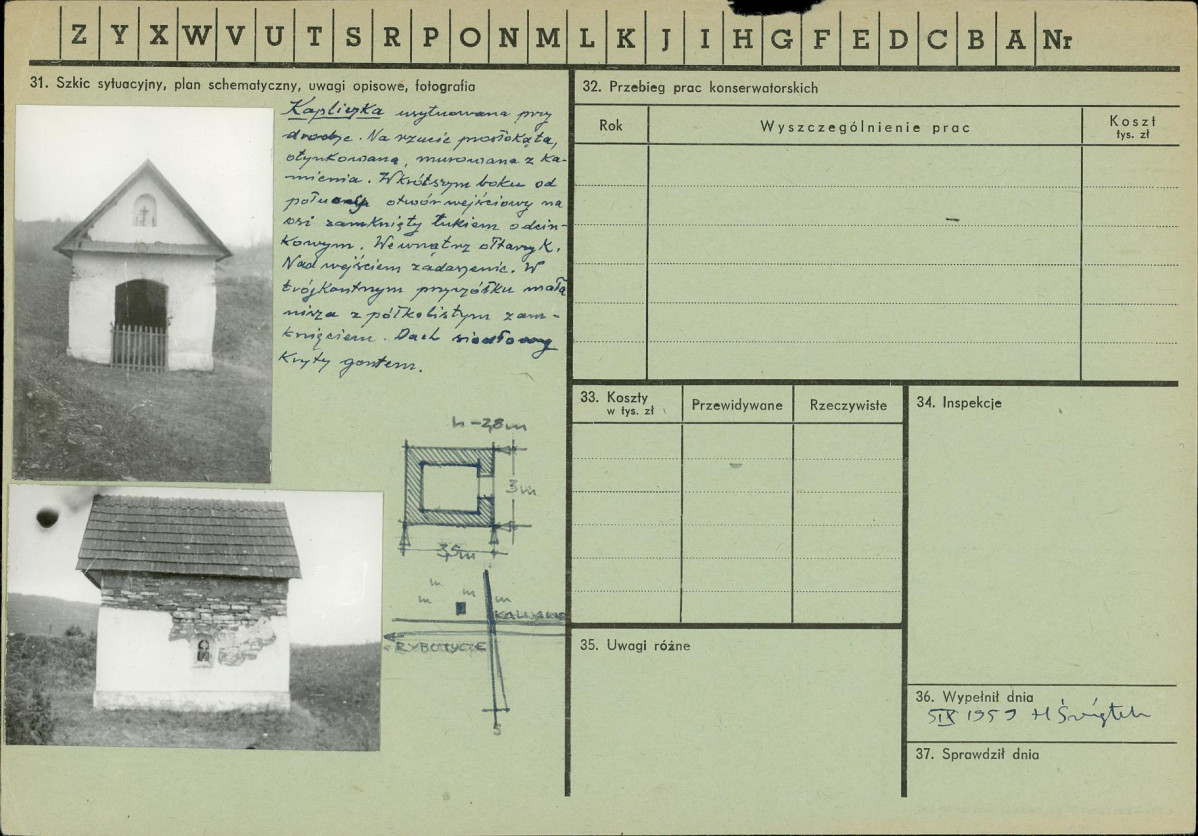 Z Y X W V U T S R P O N M L K J I H G F E D C B A Nr
31. Szkic sytuacyjny, plan schematyczny, uwagi opisowe, fotografia
Kapliczka usytuowana przy
drodze. Na rzucie prostokąta,
otynkowana, murowana z ka-
mienia. W krótszym boku od
połud. otwór wejściowy na
osi zamknięty łukiem odcin-
kowym. Wewnątrz ołtarzyk.
Nad wejściem zadaszenie. W
trójkontnym przyczółku mała
nisza z półkolistym zam-
knięciem. Dach siodłowy
Kryty gontem.
h-2,8m
3m
3,5m
m m
m m
KALWARIE
RYBOTYCZE
S
32. Przebieg prac konserwatorskich
Rok
Wyszczególnienie prac
Koszt
tys. zł
33. Koszty
w tys. zł
Przewidywane
Rzeczywiste
34. Inspekcje
35. Uwagi różne
36. Wypełnił dnia
5 IX 1959 H Świątek
37. Sprawdził dnia